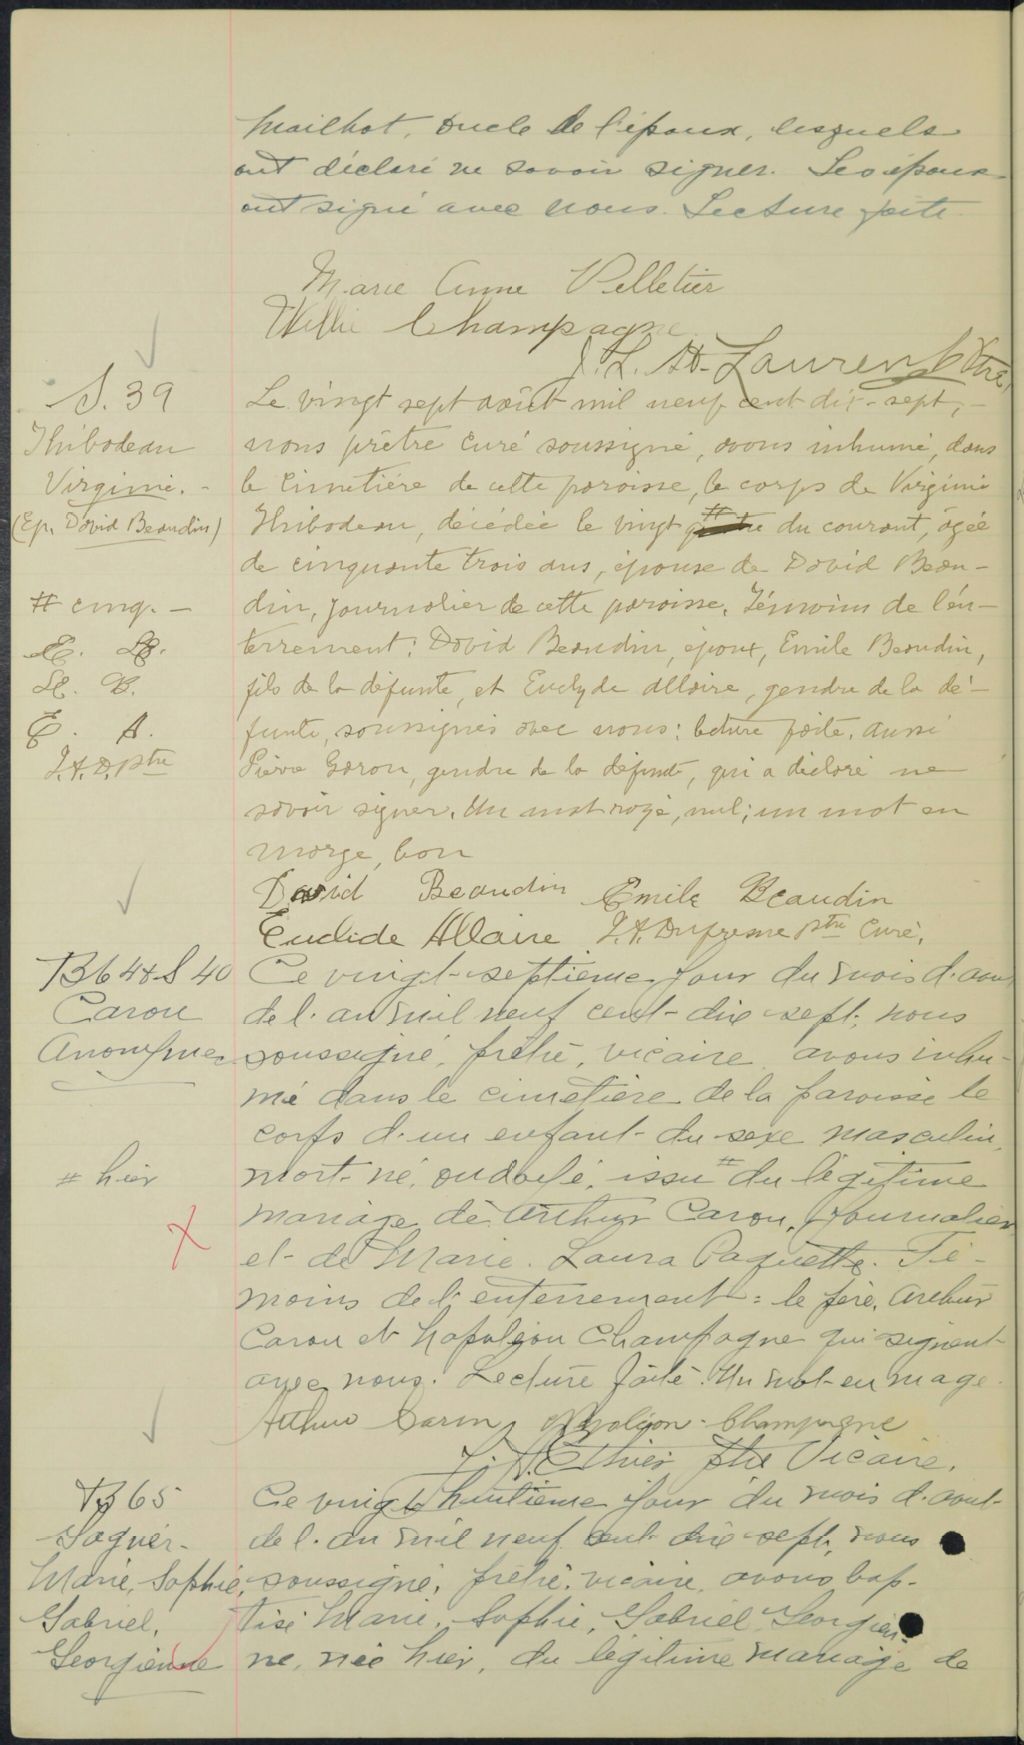 Mailhot, oncle de l'époux, lesquels
ont déclaré ne savoir signer. Les époux
ont signé avec nous. Lecture faite.
Marie Anne Pelletier
Willie Champagne
J. L. St-Laurent Ptre,
S. 39
Thibodeau
Virginie. -
(Ep. David Beaudin)
# cinq. -
E. B.
D. B.
E. A.
J.A.D. ptre
Le vingt sept août mil neuf cent dix-sept, -
nous prêtre curé soussigné, avons inhumé, dans
le cimetière de cette paroisse, le corps de Virginie
Thibodeau, décédée le vingt # du courant, âgée
de cinquante trois ans, épouse de David Beau-
din, journalier de cette paroisse. Témoins de l'en-
terrement: David Beaudin, époux, Emile Beaudin,
fils de la défunte, et Euclyde Allaire, gendre de la dé-
funte, soussignés avec nous; lecture faite. Aussi
Pierre Garon, gendre de la défunte, qui a déclaré ne
savoir signer. Un mot rayé, nul; un mot en
marge, bon
David Beaudin Emile Beaudin
Euclide Allaire J.A. Dufresne ptre Curé.
B 64 & S 40
Caron
Anonyme
# hier
X
Ce vingt-septieme jour du mois d'aout
de l'an mil neuf cent-dix-sept, nous
soussigné, prêtre, vicaire, avons inhu-
mé dans le cimetière de la paroisse le
corps d'un enfant du sexe masculin,
mort-né, ondoyé, issu # du légitime
mariage de Arthur Caron, journalier
et de Marie. Laura Paquette. Té-
moins de l'enterrement: le père, Arthur
Caron et Napoléon Champagne qui signent
avec nous. Lecture faite. Un mot en mage.
Arthur Caron, Napoléon Champagne
J. A. Ethier ptre Vicaire.
B 65
Marie, Sophie,
Gabriel,
Georgienne
Ce vingt huitieme jour du mois d'aout
de l'an mil neuf cent dix-sept, nous
soussigné, prêtre, vicaire, avons bap-
tisé Marie, Sophie, Gabriel Georgien-
ne, née hier, du légitime mariage de